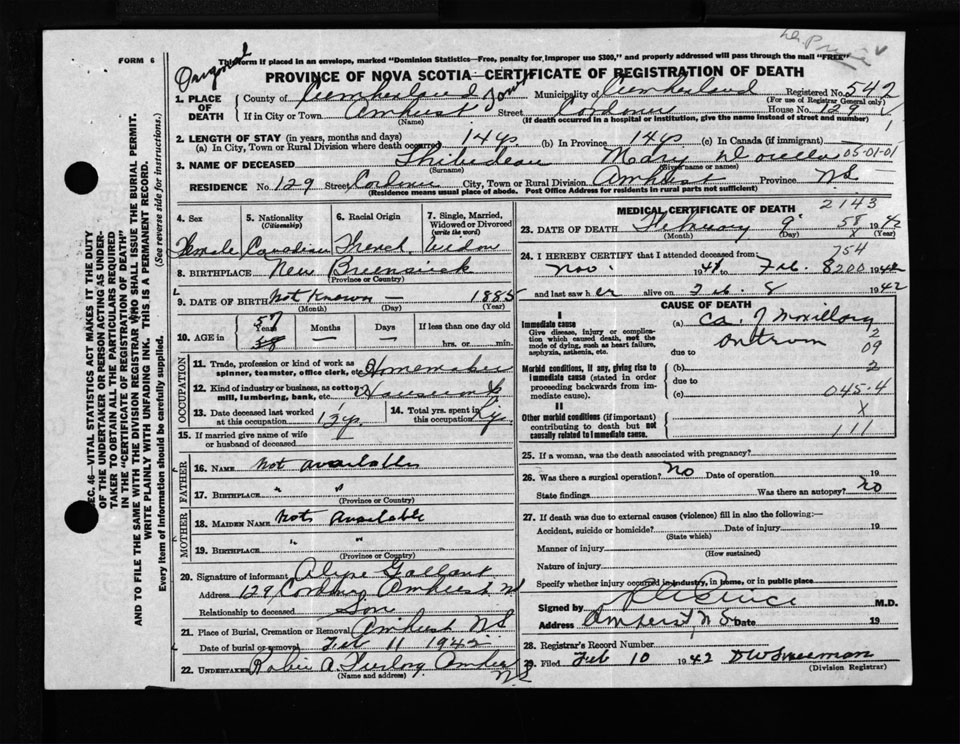 FORM 6
Original
This form if placed in an envelope, marked "Dominion Statistics—Free, penalty for improper use $300," and properly addressed will pass through the mail "FREE"
PROVINCE OF NOVA SCOTIA—CERTIFICATE OF REGISTRATION OF DEATH
1. PLACE OF DEATH
County of Cumberland Municipality of Cumberland Registered No. 542
(For use of Registrar General only)
If in City or Town Amherst Street House No. 129
(Name) (If death occurred in a hospital or institution, give the name instead of street and number)
2. LENGTH OF STAY (in years, months and days)
(a) In City, Town or Rural Division where death occurred 14 yrs (b) In Province 14 yrs (c) In Canada (if immigrant)
3. NAME OF DECEASED Thibedeau Mary 05-01-01
(Surname) (Given name or names)
RESIDENCE No. 129 Street City, Town or Rural Division Amherst Province N.S.
(Residence means usual place of abode. Post Office Address for residents in rural parts not sufficient)
4. Sex Female
5. Nationality (Citizenship) Canadian
6. Racial Origin French
7. Single, Married, Widowed or Divorced (write the word) Widow
8. BIRTHPLACE New Brunswick
(Province or Country)
9. DATE OF BIRTH Not Known — 1885
(Month) (Day) (Year)
10. AGE in 57 Years Months Days If less than one day old
58 — — hrs. or min.
OCCUPATION
11. Trade, profession or kind of work as spinner, teamster, office clerk, etc. Homemaker
12. Kind of industry or business, as cotton-mill, lumbering, bank, etc. Housework
13. Date deceased last worked at this occupation
14. Total yrs. spent in this occupation
15. If married give name of wife or husband of deceased
FATHER
16. NAME Not available
17. BIRTHPLACE " "
(Province or Country)
MOTHER
18. MAIDEN NAME Not available
19. BIRTHPLACE " "
(Province or Country)
20. Signature of informant Gallant
Address 129 Amherst NS
Relationship to deceased Son
21. Place of Burial, Cremation or Removal Amherst NS
Date of burial or removal Feb 11 1942
22. UNDERTAKER Amherst NS
(Name and address)
MEDICAL CERTIFICATE OF DEATH 2143
23. DATE OF DEATH February 9 58 1942
(Month) (Day) X (Year)
24. I HEREBY CERTIFY that I attended deceased from 754
Nov. 1941 to Feb. 8 200 1942
and last saw her alive on Feb. 8 1942
CAUSE OF DEATH
I
Immediate cause
Give disease, injury or complication which caused death, not the mode of dying, such as heart failure, asphyxia, asthenia, etc.
(a) Ca. of Maxillary antrum 2
due to 09
Morbid conditions, if any, giving rise to immediate cause (stated in order proceeding backwards from immediate cause).
(b) 2
due to
(c) 045.4
II
Other morbid conditions (if important) contributing to death but not causally related to immediate cause.
X
111
25. If a woman, was the death associated with pregnancy?
26. Was there a surgical operation? No Date of operation 19
State findings Was there an autopsy? No
27. If death was due to external causes (violence) fill in also the following:—
Accident, suicide or homicide? Date of injury 19
(State which)
Manner of injury
(How sustained)
Nature of injury
Specify whether injury occurred in industry, in home, or in public place
Signed by M.D.
Address Amherst N.S. Date 19
28. Registrar's Record Number
29. Filed Feb 10 1942 DW Freeman
(Division Registrar)
SEC. 46—VITAL STATISTICS ACT MAKES IT THE DUTY
OF THE UNDERTAKER OR PERSON ACTING AS UNDER-
TAKER TO OBTAIN ALL THE PARTICULARS REQUIRED
IN THE "CERTIFICATE OF REGISTRATION OF DEATH"
AND TO FILE THE SAME WITH THE DIVISION REGISTRAR WHO SHALL ISSUE THE BURIAL PERMIT.
WRITE PLAINLY WITH UNFADING INK. THIS IS A PERMANENT RECORD.
Every item of information should be carefully supplied. (See reverse side for instructions.)